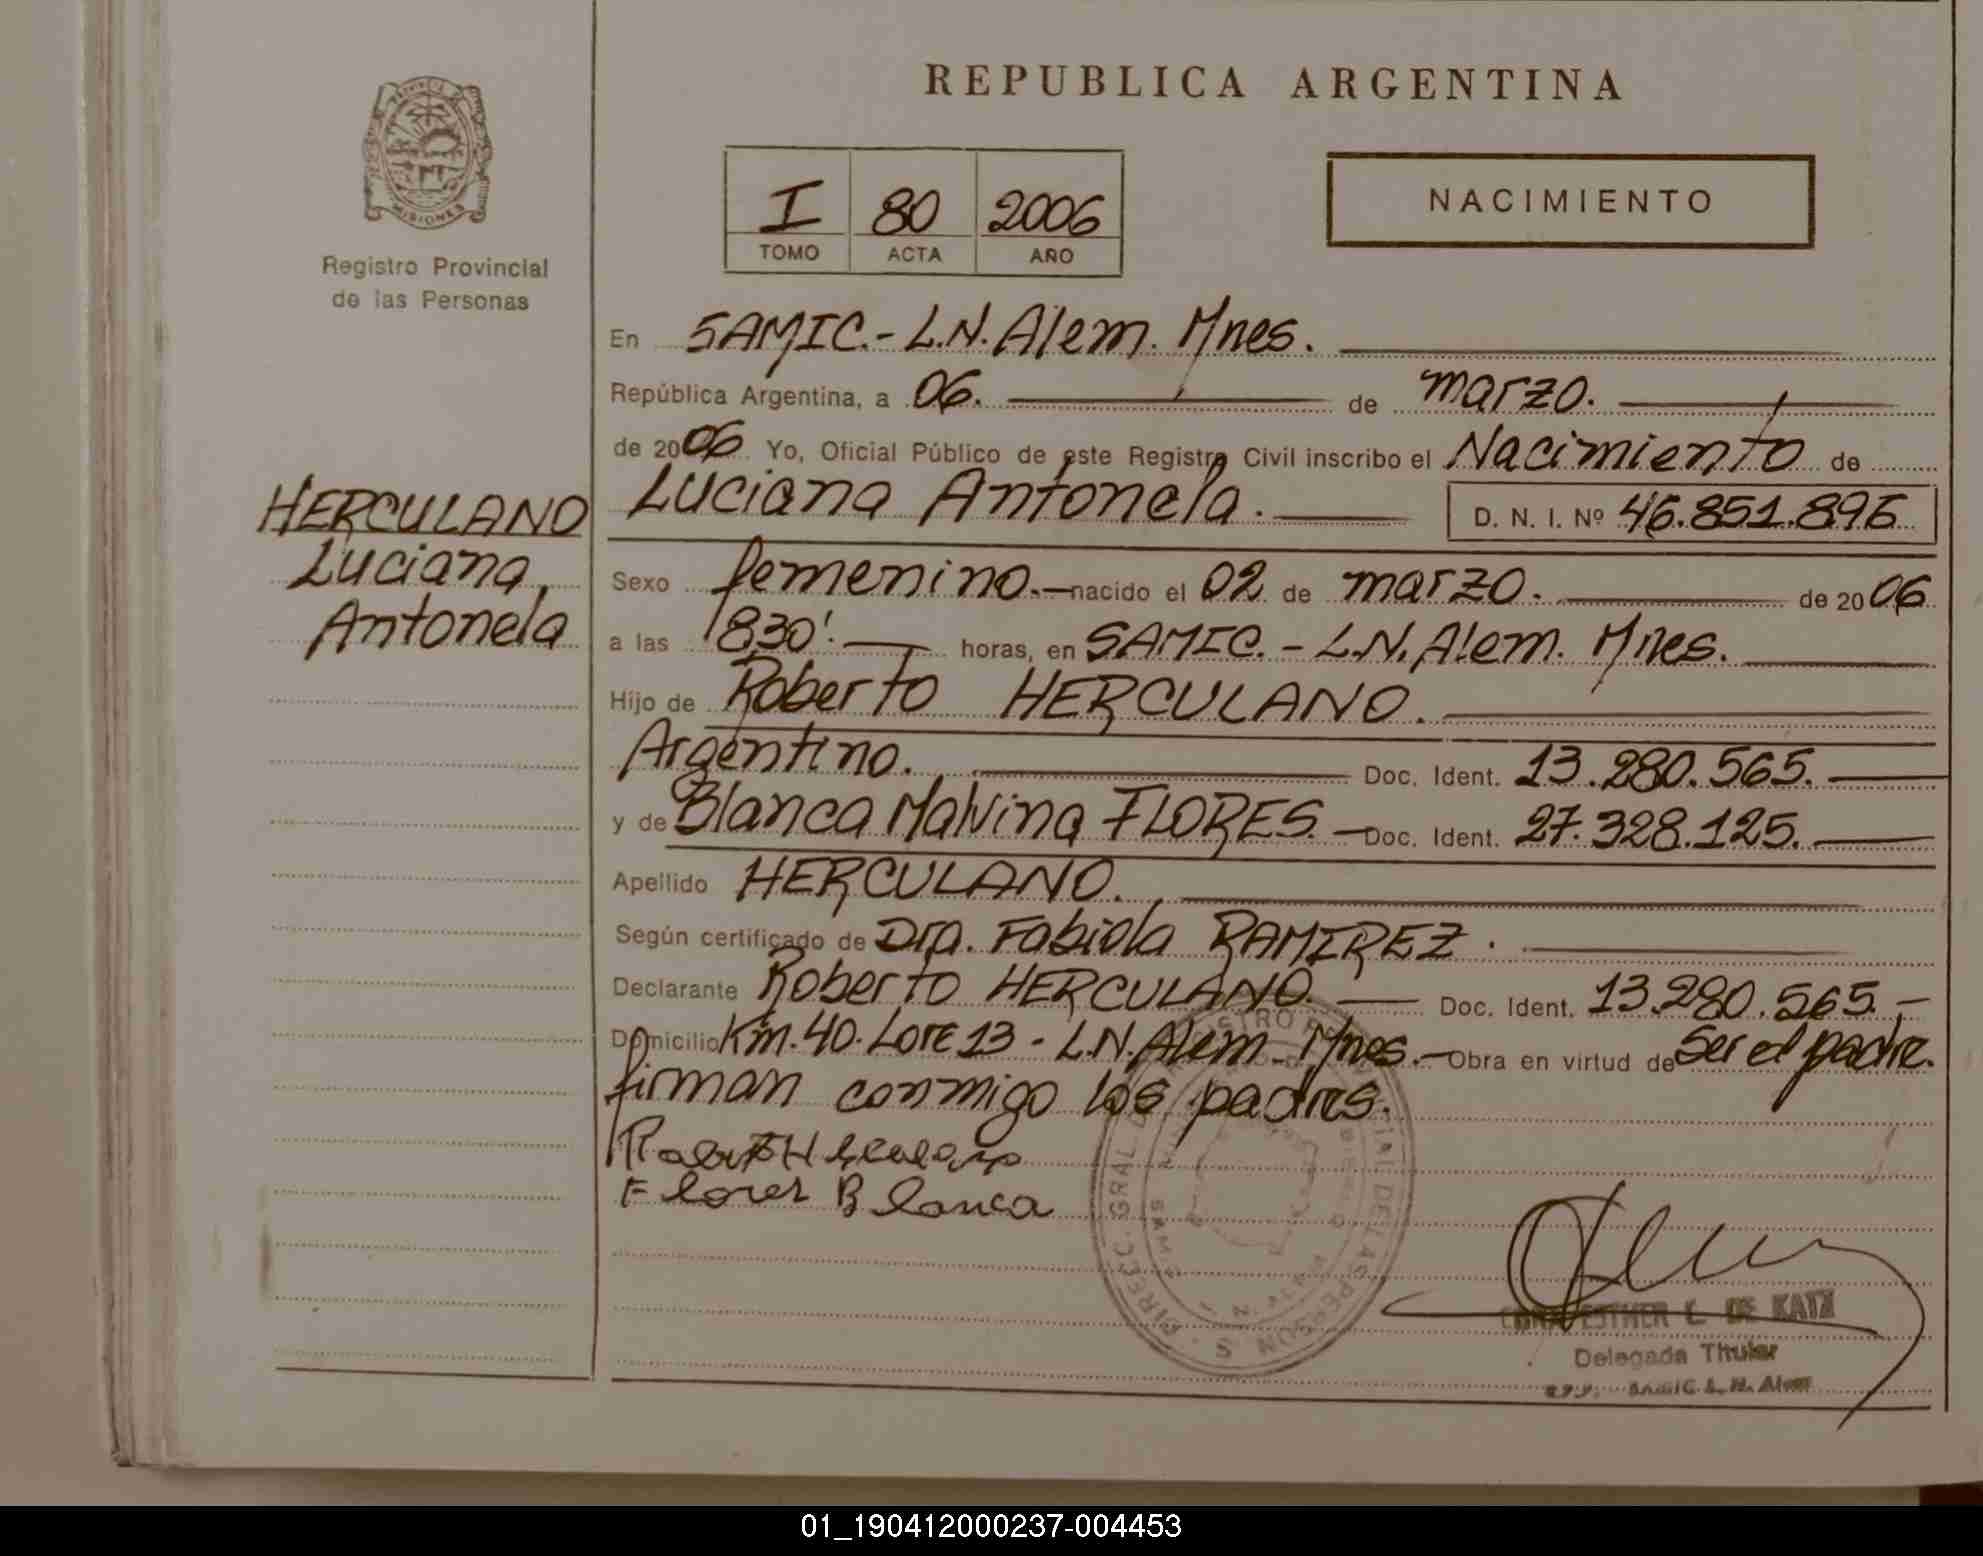 REPUBLICA ARGENTINA
MISIONES
Registro Provincial
de las Personas
I 80 2006
TOMO ACTA AÑO
NACIMIENTO
HERCULANO
Luciana
Antonela
En SAMIC.- L.N. Alem. Mnes.
República Argentina, a 06. de marzo.
de 2006 Yo, Oficial Público de este Registro Civil inscribo el Nacimiento de
Luciana Antonela. D. N. I. Nº 46.851.896
Sexo femenino.- nacido el 02 de marzo. de 2006
a las 830'. horas, en SAMIC. - L.N. Alem. Mnes.
Hijo de Roberto HERCULANO.
Argentino. Doc. Ident. 13.280.565.
y de Blanca Malvina FLORES.- Doc. Ident. 27.328.125.
Apellido HERCULANO.
Según certificado de Dra. Fabiola RAMIREZ.
Declarante Roberto HERCULANO. Doc. Ident. 13.280.565.-
Domicilio Km. 40. Lote 13 - L.N. Alem - Mnes.- Obra en virtud de Ser el padre.
firman conmigo los padres.
Flores Blanca
ESTHER L. DE KATZ
Delegada Titular
SAMIC L. N. Alem
01_190412000237-004453